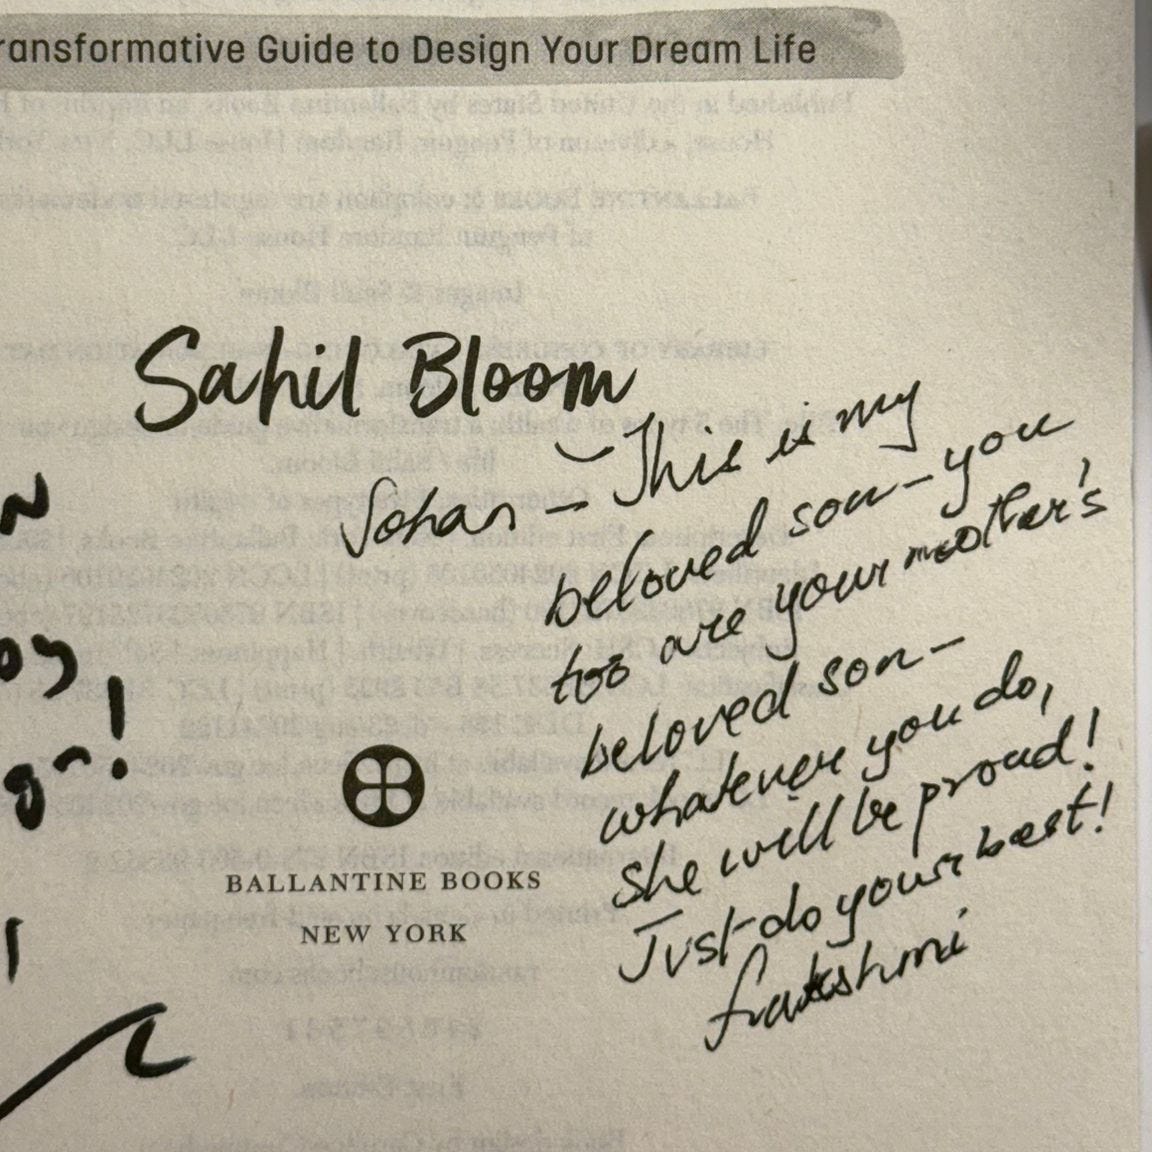 ransformative Guide to Design Your Dream Life
Sahil Bloom
Sohan - This is my
beloved son - you
too are your mother's
beloved son -
whatever you do,
she will be proud!
Just do your best!
BALLANTINE BOOKS
NEW YORK